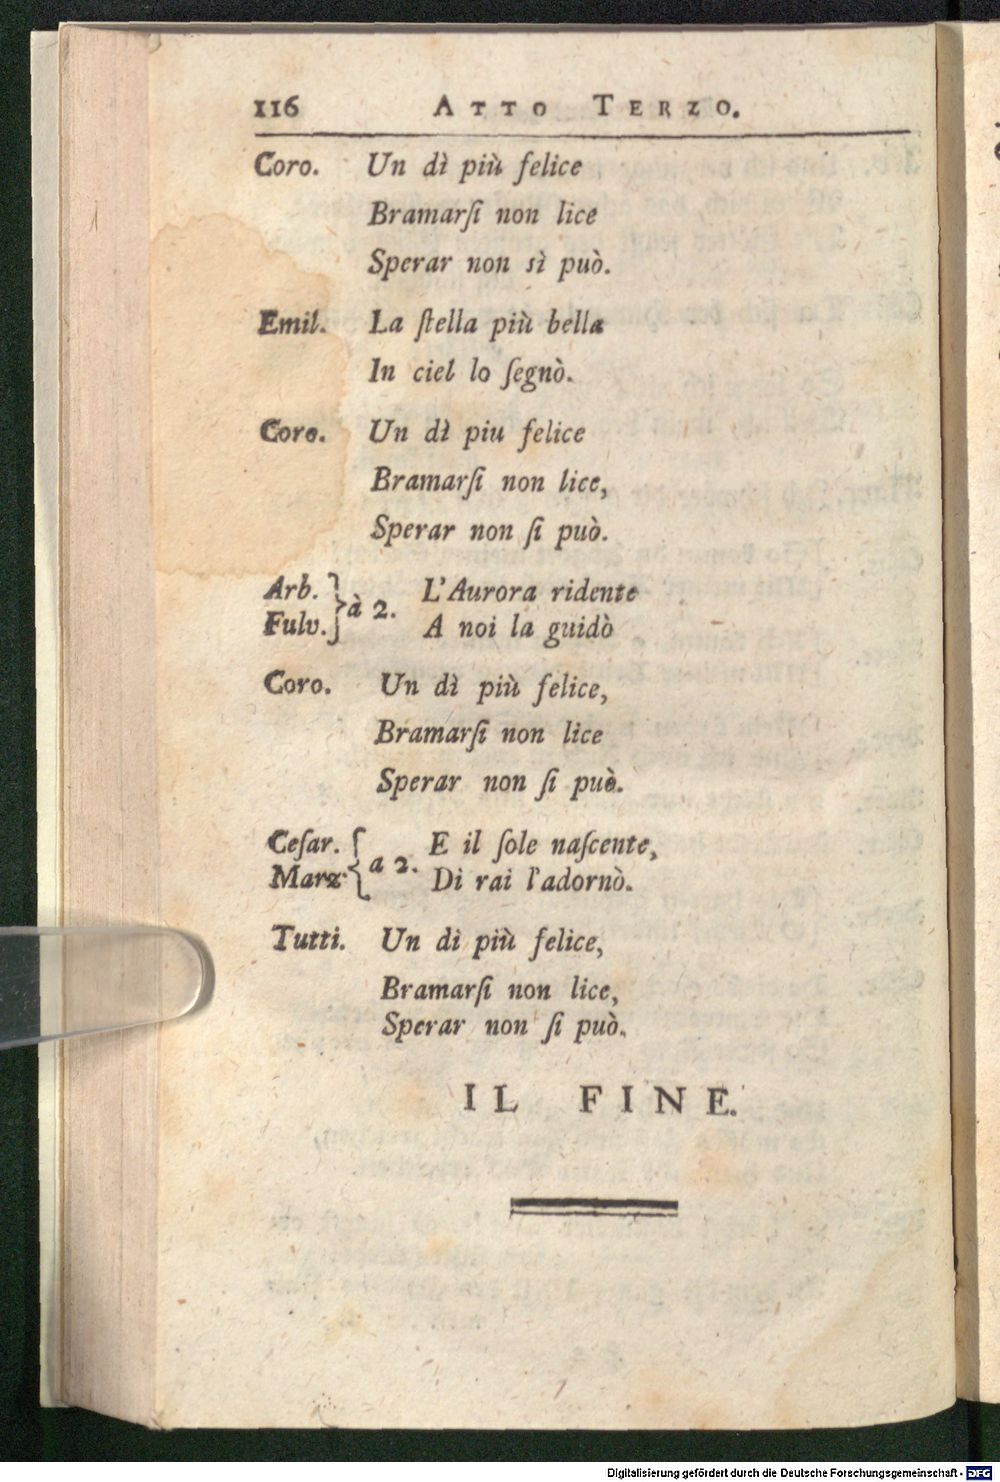 116 ATTO TERZO.
Coro. Un dì più felice
Bramarſi non lice
Sperar non sì può.
Emil. La ſtella più bella
In ciel lo ſegnò.
Coro. Un dì piu felice
Bramarſi non lice,
Sperar non ſi può.
Arb. } à 2. L'Aurora ridente
Fulv. } A noi la guidò
Coro. Un dì più felice,
Bramarſi non lice
Sperar non ſi può.
Ceſar. { a 2. E il ſole naſcente,
Marz. { Di rai l'adornò.
Tutti. Un dì più felice,
Bramarſi non lice,
Sperar non ſi può.
IL FINE.
Digitalisierung gefördert durch die Deutsche Forschungsgemeinschaft - DFG